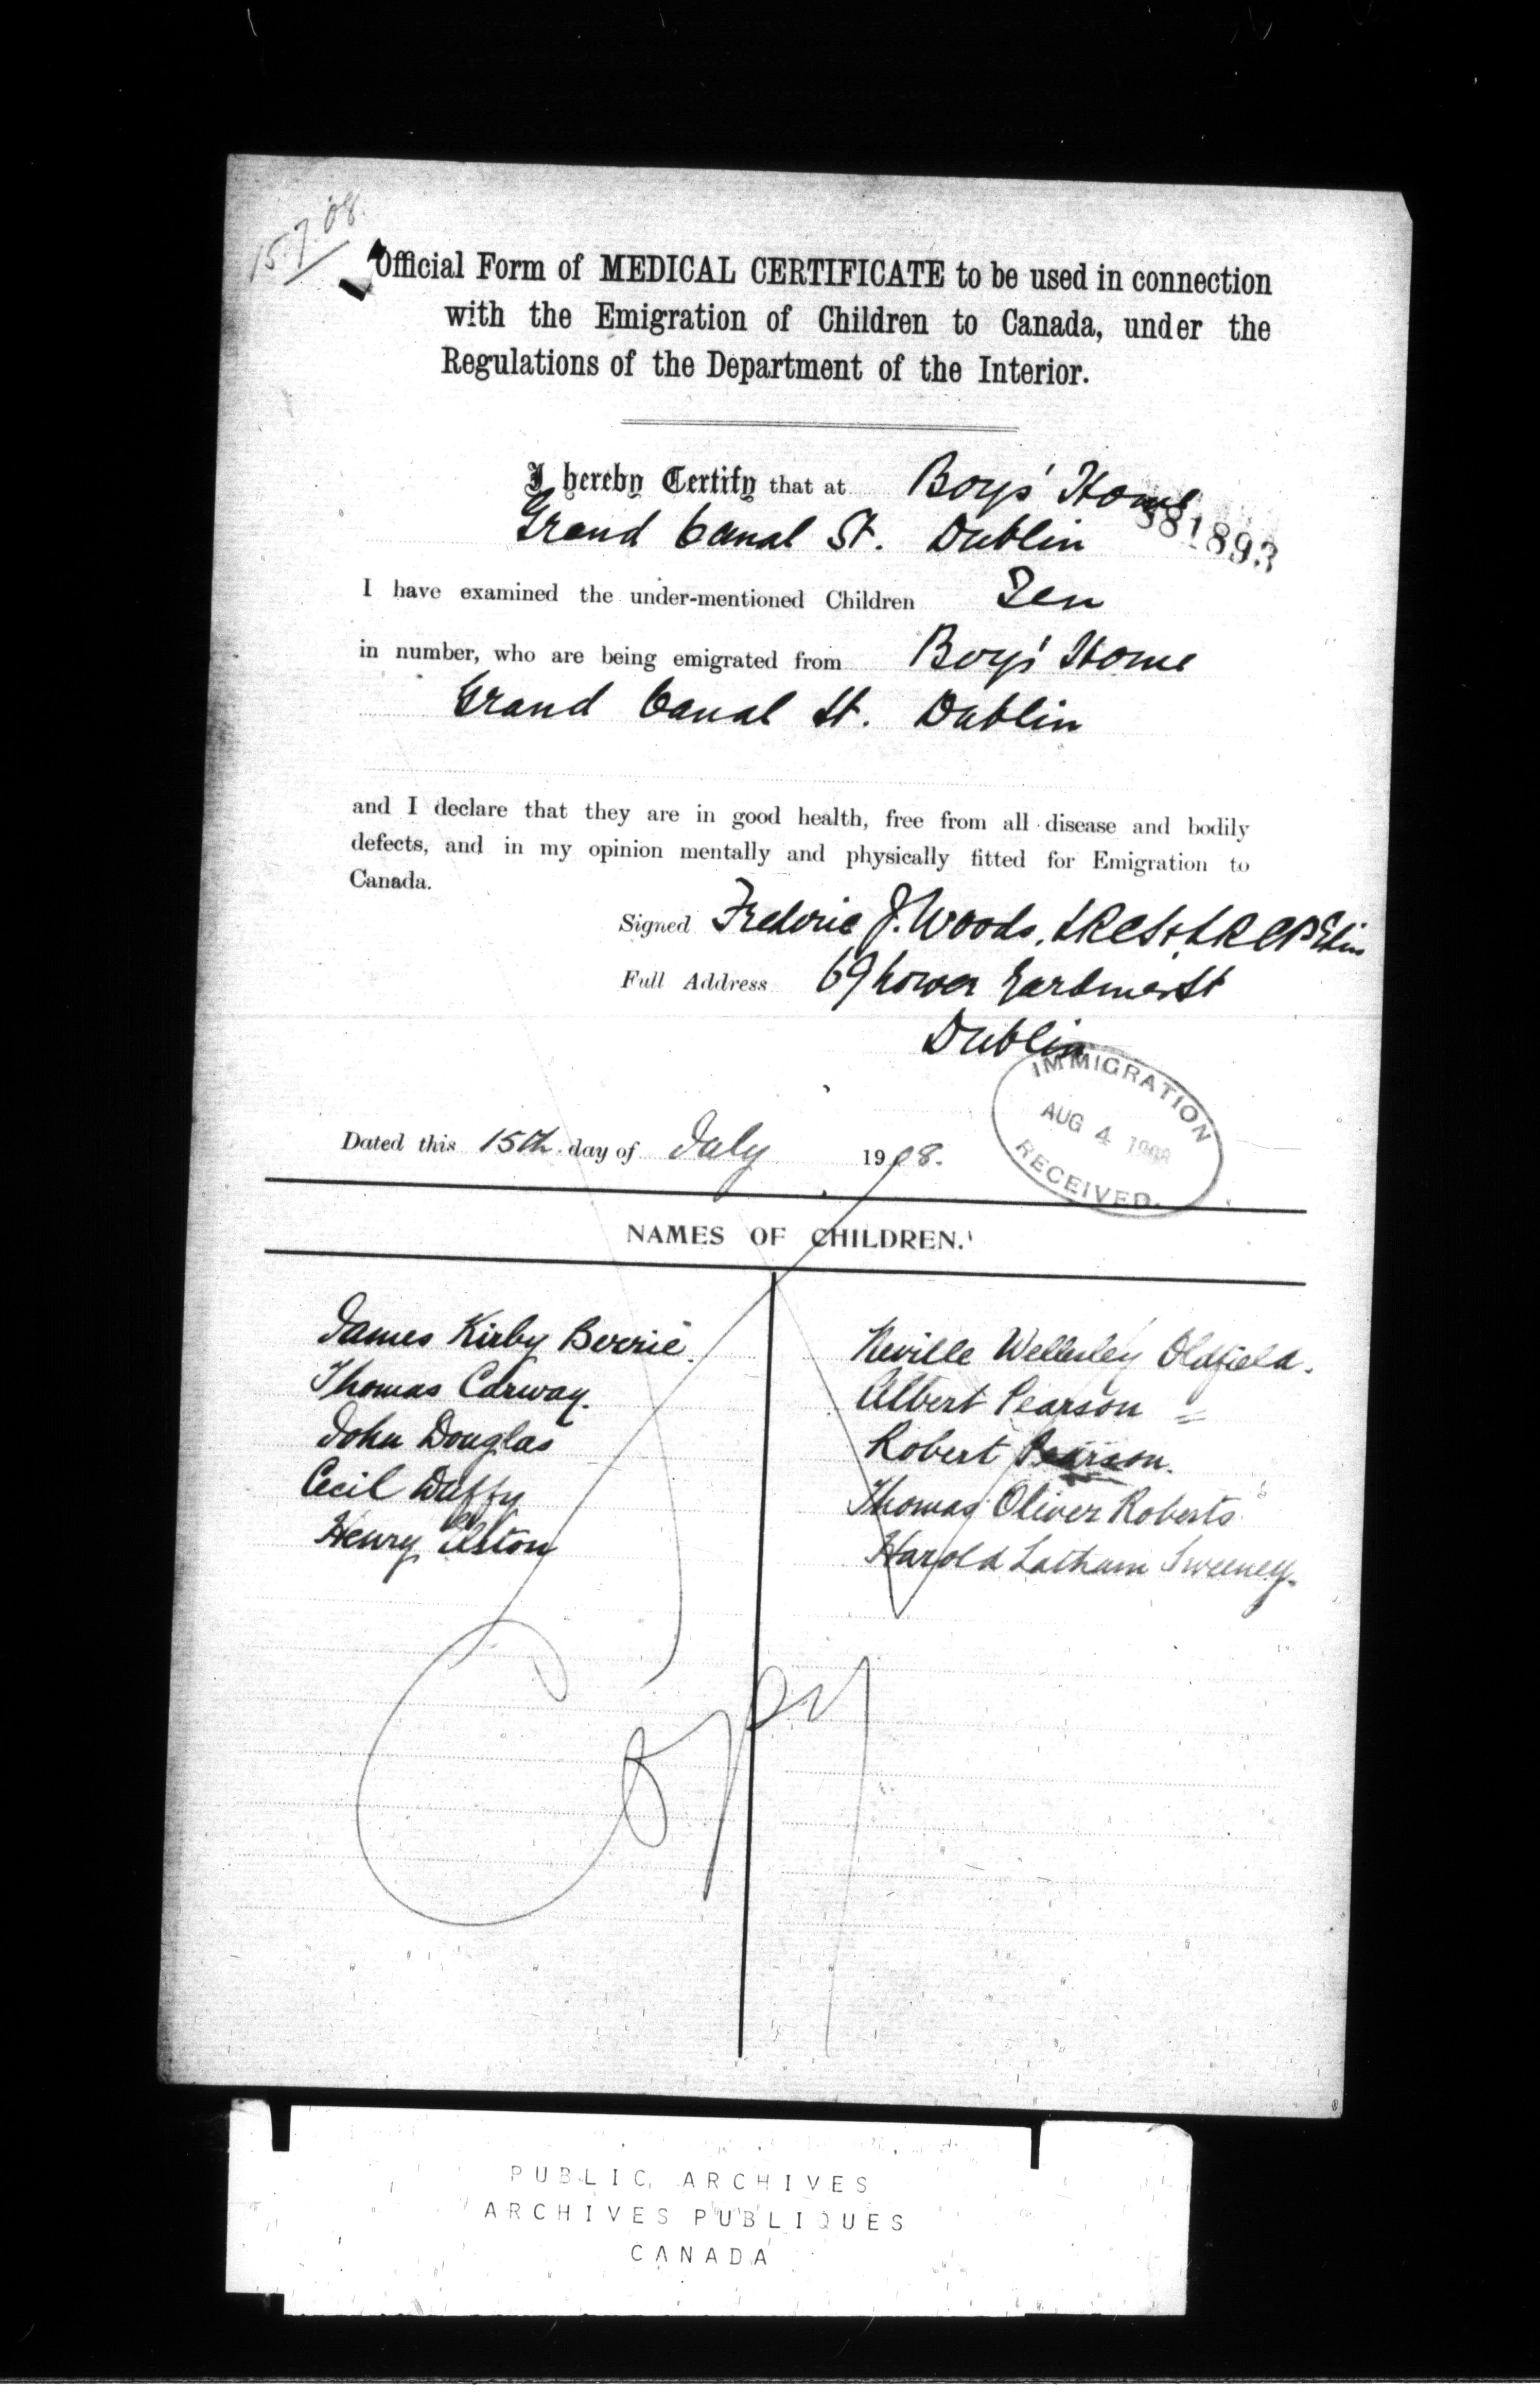 15.7.08.
Official Form of MEDICAL CERTIFICATE to be used in connection
with the Emigration of Children to Canada, under the
Regulations of the Department of the Interior.
I hereby Certify that at Boys' Home
881893
Grand Canal St. Dublin
I have examined the under-mentioned Children Ten
in number, who are being emigrated from Boys' Home
Grand Canal St. Dublin
and I declare that they are in good health, free from all disease and bodily
defects, and in my opinion mentally and physically fitted for Emigration to
Canada.
Signed Frederic J. Woods, LRCS & LRCP Edin
Full Address 69 Lower Gardiner St
Dublin
IMMIGRATION
AUG 4 1908
RECEIVED.
Dated this 15th day of July 1908.
NAMES OF CHILDREN.
James Kirby Berrie.
Thomas Carway.
John Douglas
Cecil Duffy
Henry Elston
Neville Wellesley Oldfield.
Albert Pearson
Robert Pearson.
Thomas Oliver Roberts
Harold Latham Sweeney.
Copy
PUBLIC ARCHIVES
ARCHIVES PUBLIQUES
CANADA